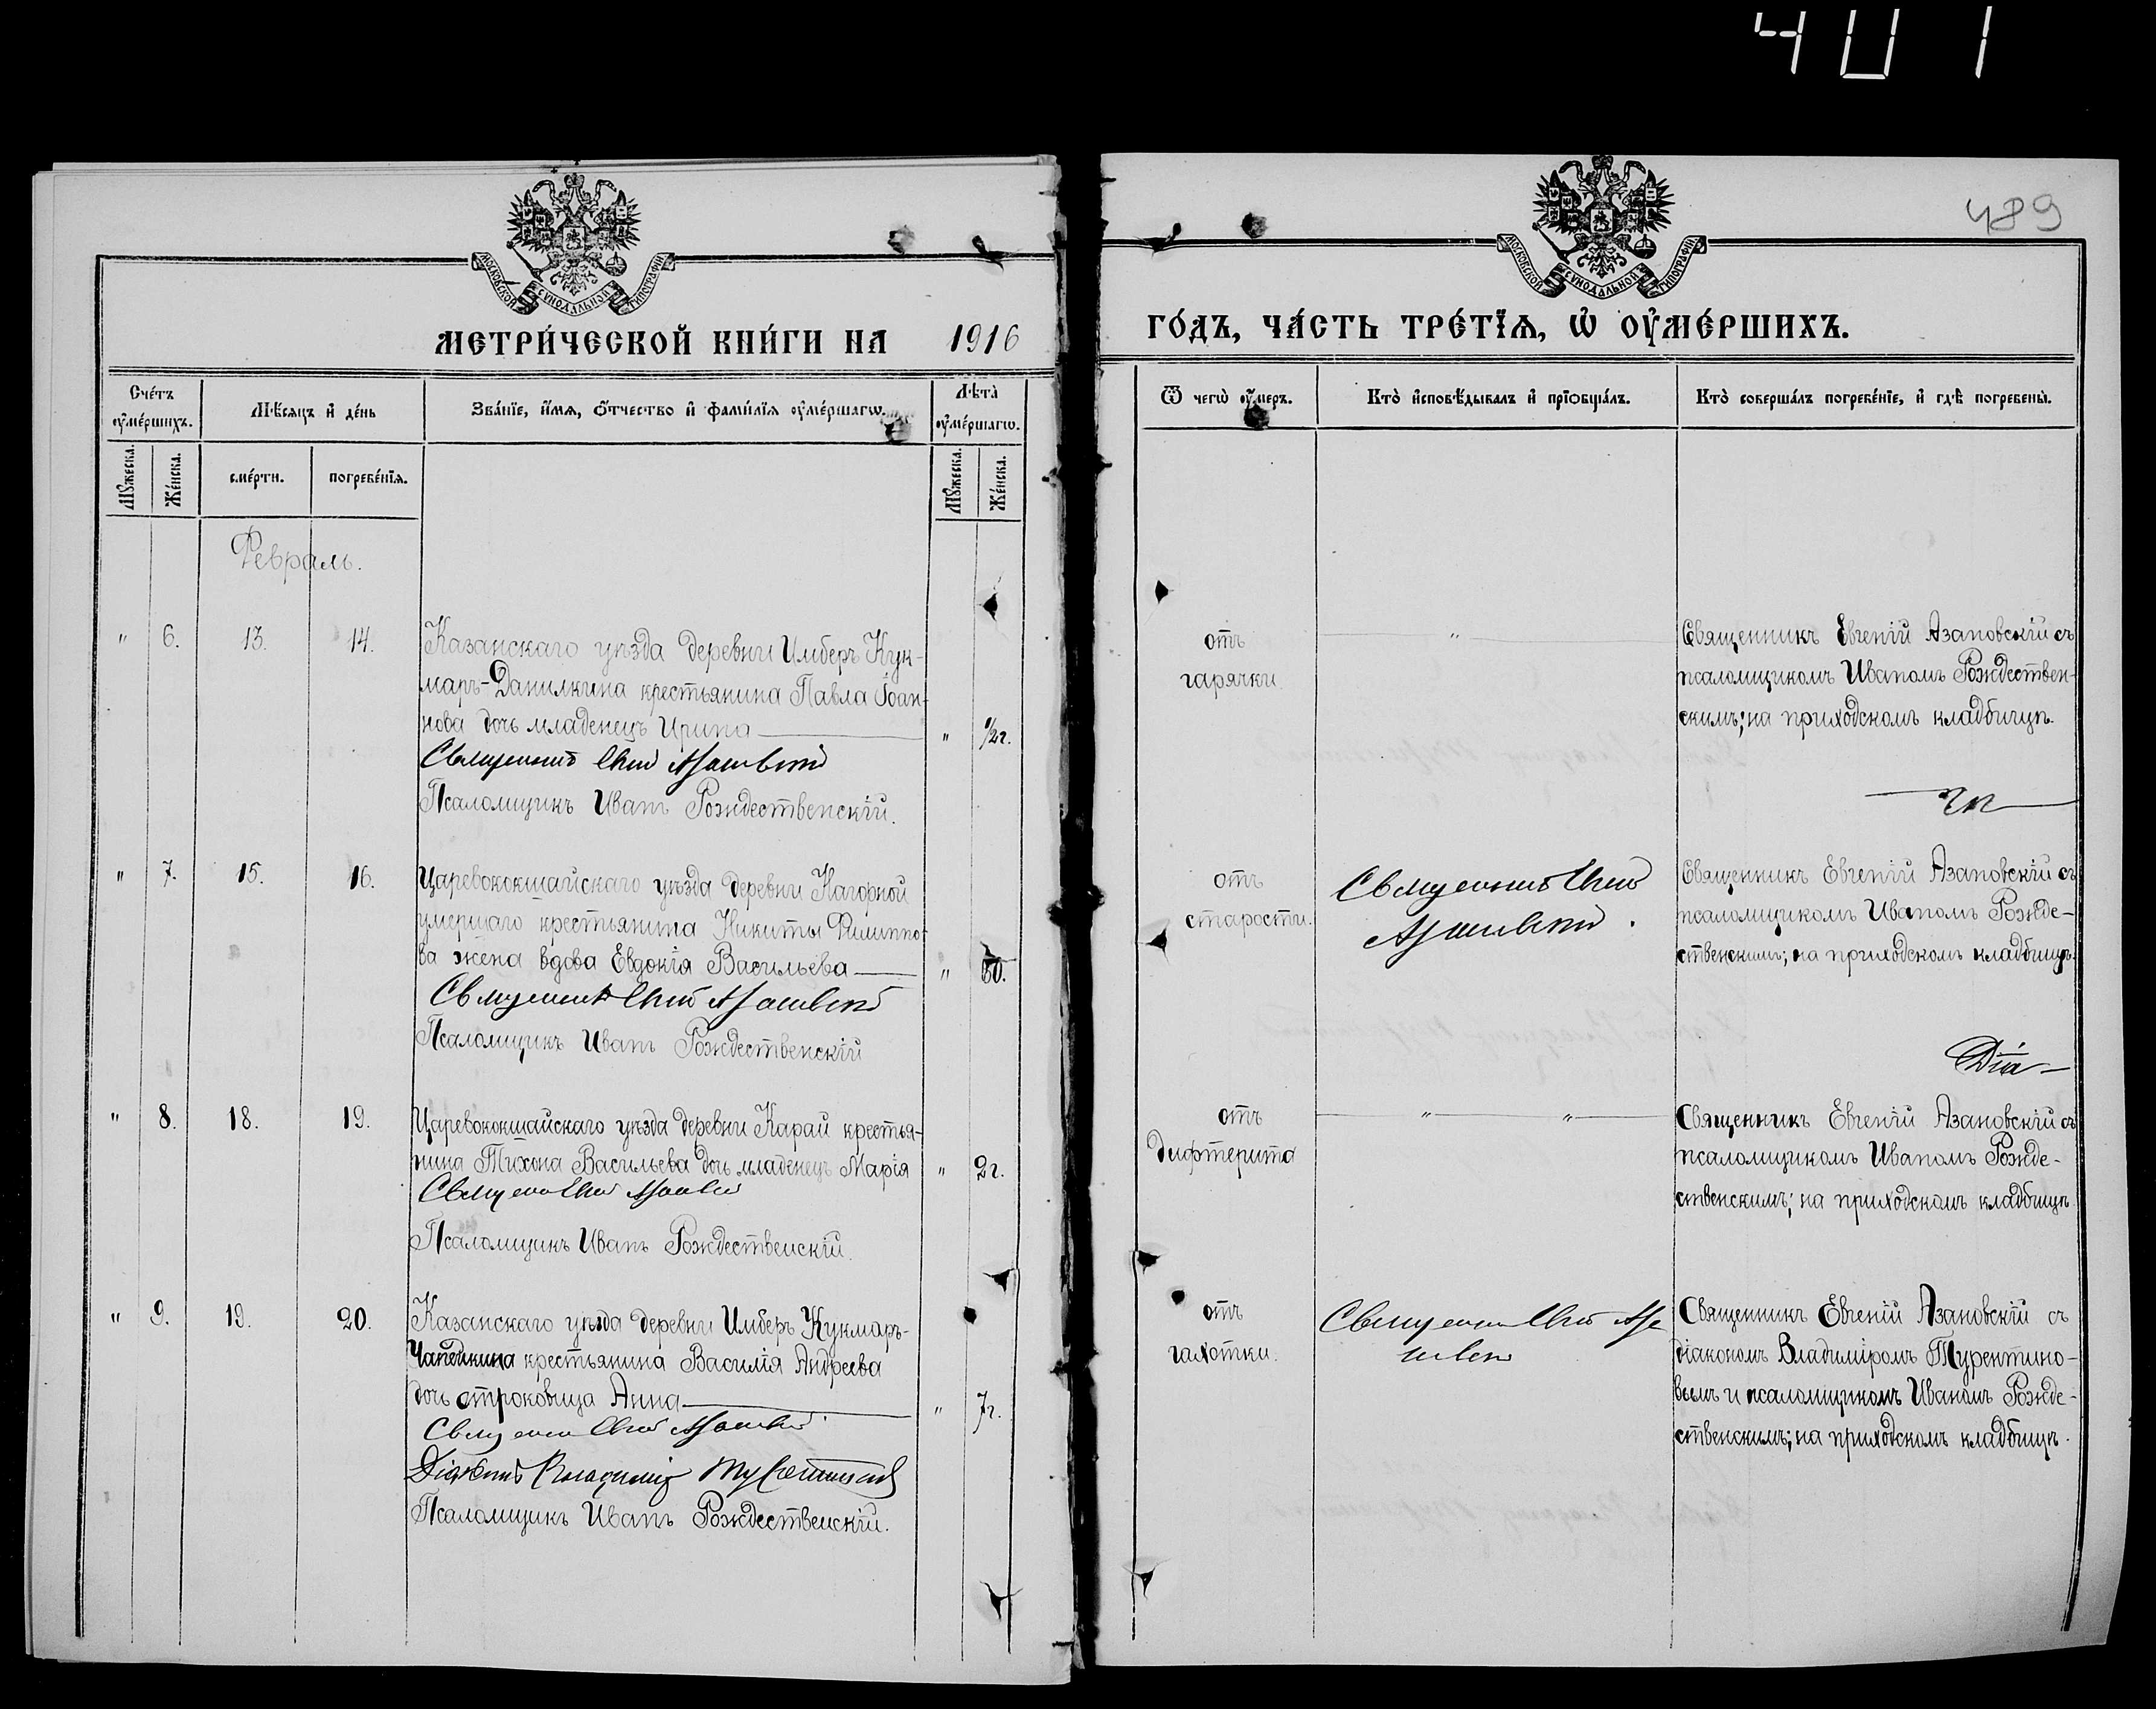 401
489
МОСКОВСКОЙ СѴНОДАЛЬНОЙ ТИПОГРАФІИ
МОСКОВСКОЙ СѴНОДАЛЬНОЙ ТИПОГРАФІИ
МЕТРИ́ЧЕСКОЙ КНИ́ГИ НА 1916
ГО́ДЪ, ЧА́СТЬ ТРЕ́ТЇѦ, Ѡ҆ ОУ҆МЕ́РШИХЪ.
Сче́тъ оу҆ме́ршихъ.
Мѣ́сяцъ и҆ де́нь
Зва́нїе, и҆́мѧ, ѻ҆́тчество и҆ фами́лїѧ оу҆ме́ршагѡ.
Лѣ́та оу҆ме́ршагѡ.
Ѿ чегѡ̀ оу҆́меръ.
Кто̀ и҆сповѣ́дывалъ и҆ прїобща́лъ.
Кто̀ соверша́лъ погребе́нїе, и҆ гдѣ̀ погребены̀.
Мꙋ́жеска.
Же́нска.
сме́рти.
погребе́нїѧ.
Мꙋ́жеска.
Же́нска.
Февраль.
" 6. 13. 14.
Казанскаго уѣзда деревни Имберъ Кук-
маръ-Данилкина крестьянина Павла Іоан-
нова дочь младенецъ Ирина
" 1/2 г.
Священникъ Евгеній Азановскій
Псаломщикъ Иванъ Рождественскій.
отъ
гарячки.
"
Священникъ Евгеній Азановскій съ
псаломщикомъ Иваномъ Рождествен-
скимъ; на приходскомъ кладбищѣ.
" 7. 15. 16.
Царевококшайскаго уѣзда деревни Нагорной
умершаго крестьянина Никиты Филиппо-
ва жена вдова Евдокія Васильева
"
Священникъ Евгеній Азановскій
Псаломщикъ Иванъ Рождественскій
отъ
старости.
Священникъ Евгеній
Азановскій.
Священникъ Евгеній Азановскій съ
псаломщикомъ Иваномъ Рожде-
ственскимъ; на приходскомъ кладбищѣ.
Діа-
" 8. 18. 19.
Царевококшайскаго уѣзда деревни Карай крестья-
нина Тихона Васильева дочь младенецъ Марія
" 2 г.
Священ Евгеній Азановскій
Псаломщикъ Иванъ Рождественскій.
отъ
дифтерита
" "
Священникъ Евгеній Азановскій съ
псаломщикомъ Иваномъ Рожде-
ственскимъ; на приходскомъ кладбищѣ.
" 9. 19. 20.
Казанскаго уѣзда деревни Имберъ Кукмаръ-
Чапейкина крестьянина Василія Андреева
дочь отроковица Анна
" 7 г.
Священ Евгеній Азановскій.
Діаконъ Владиміръ Турентиновъ
Псаломщикъ Иванъ Рождественскій.
отъ
чахотки.
Священ Евгеній Аза
новскій
Священникъ Евгеній Азановскій съ
діакономъ Владиміромъ Турентино-
вымъ и псаломщикомъ Иваномъ Рожде-
ственскимъ; на приходскомъ кладбищѣ.